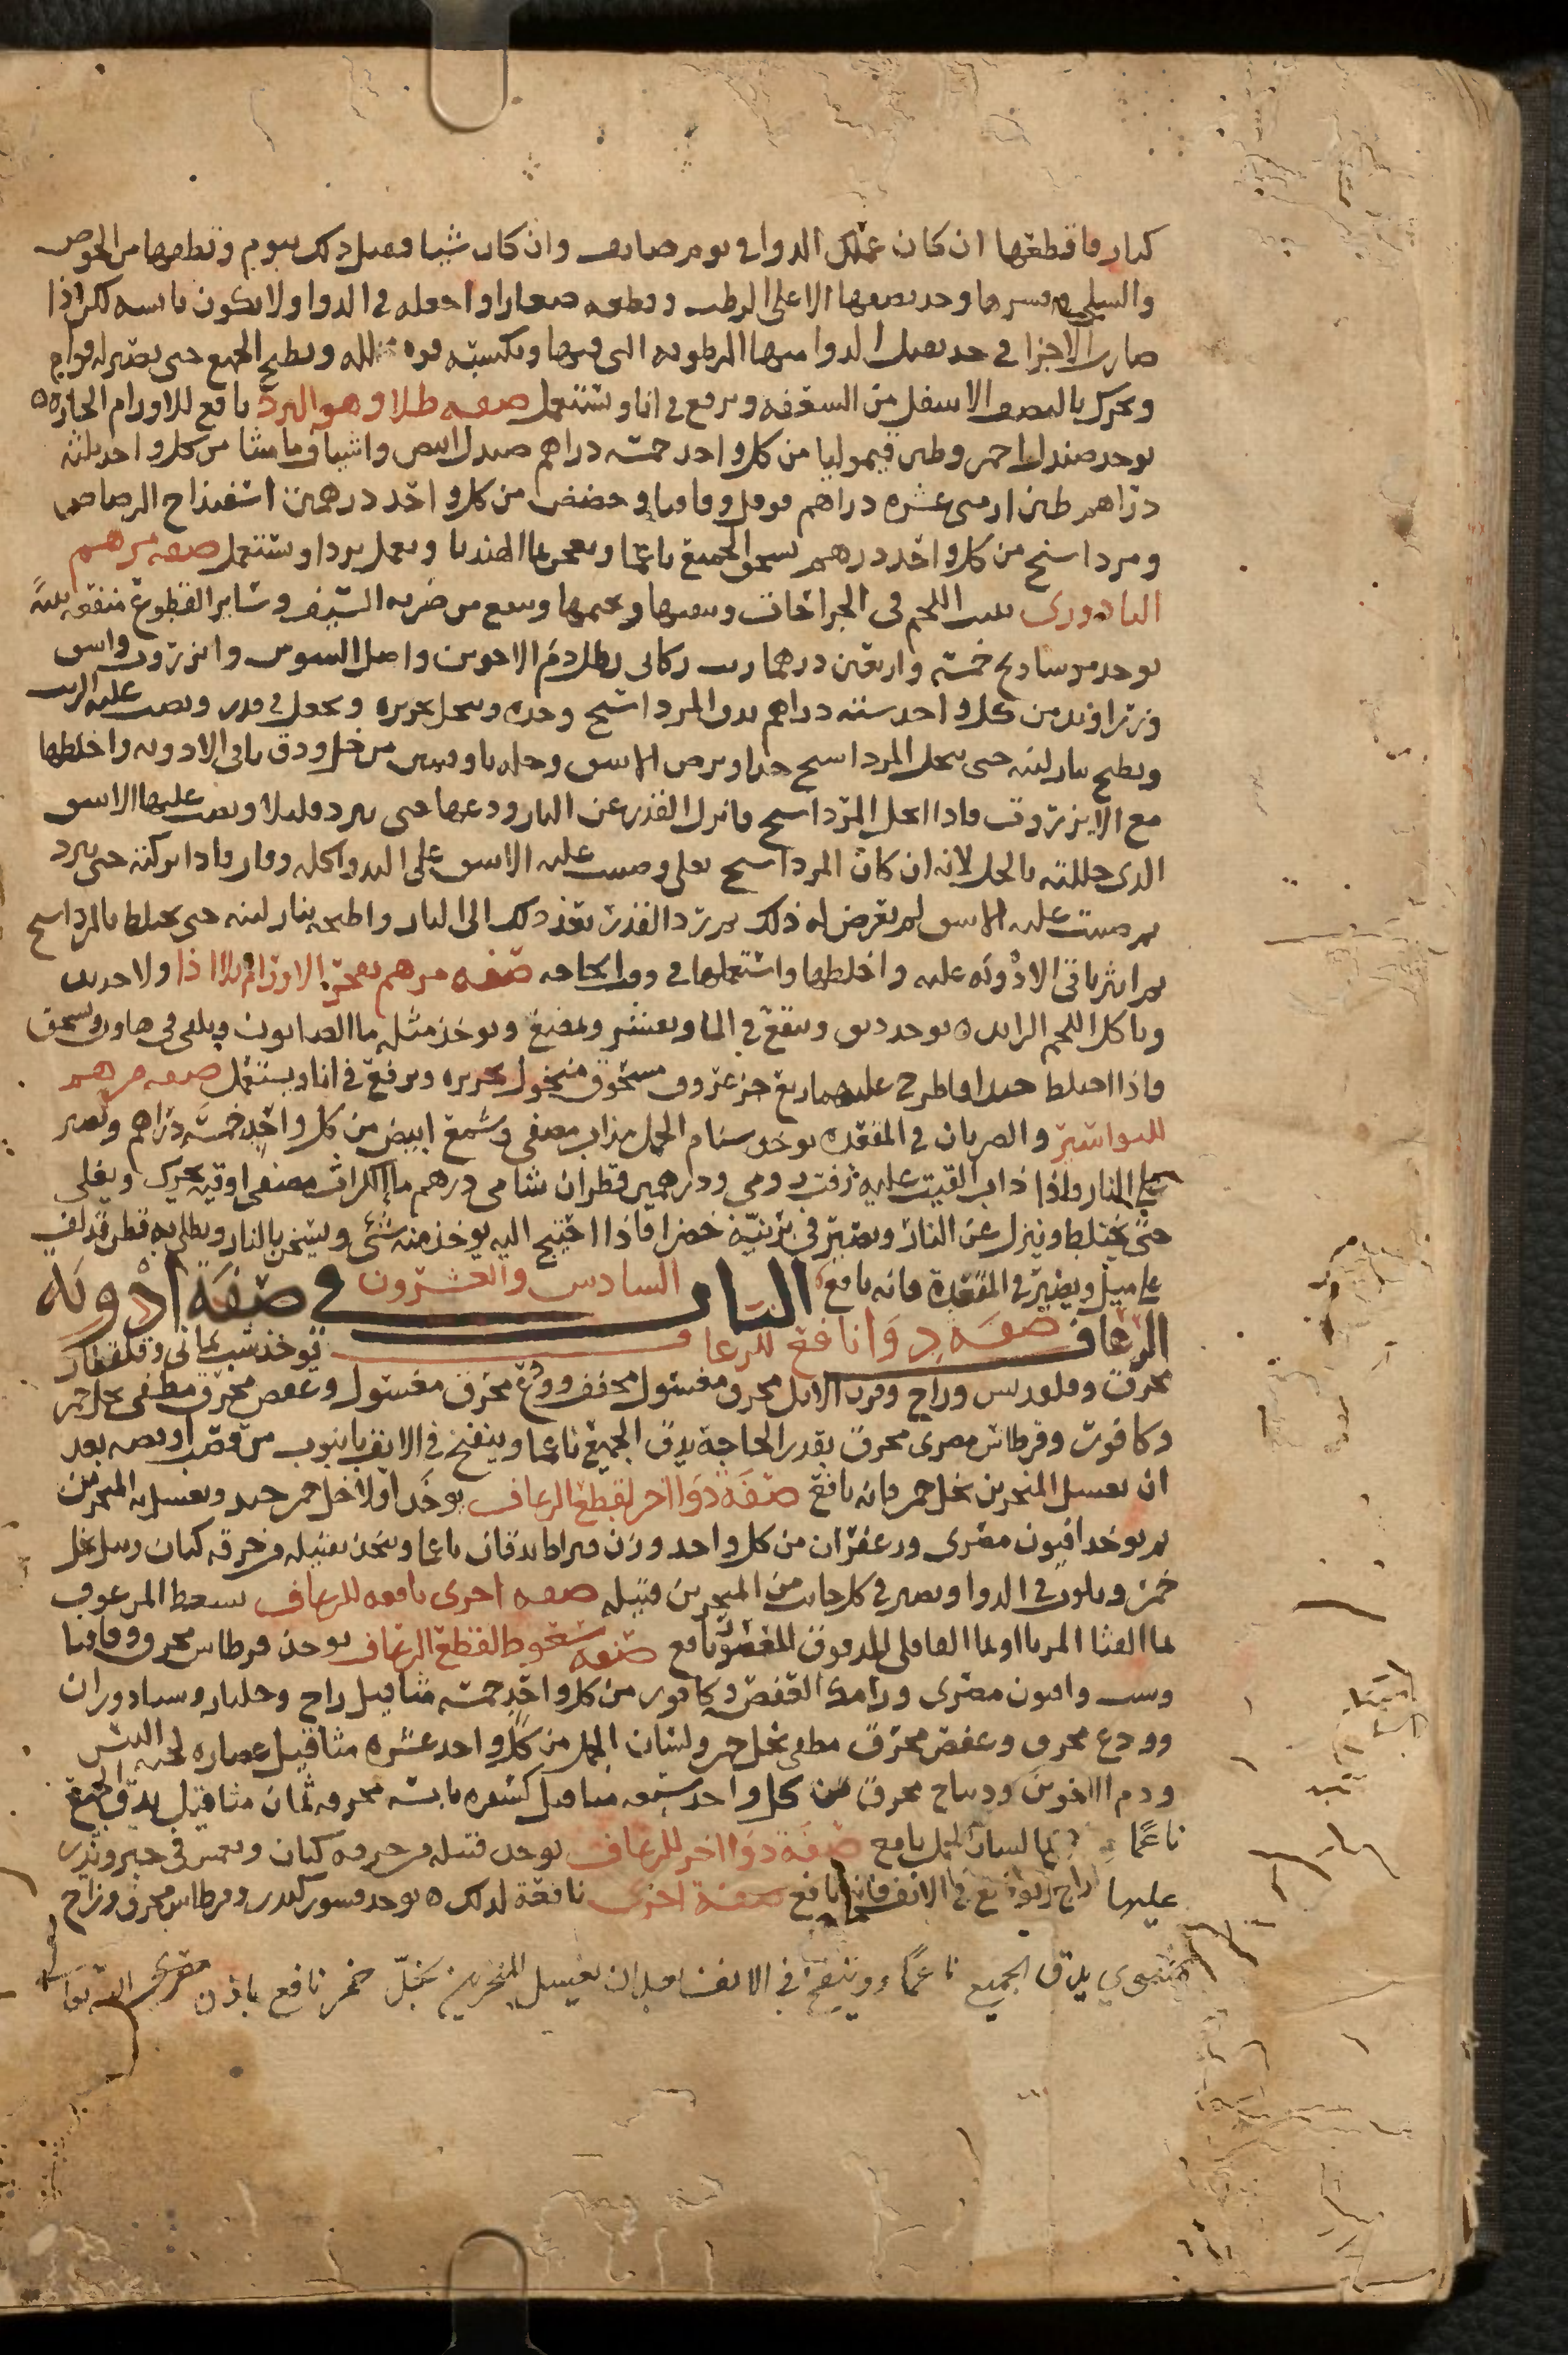 كبار فاقطعها ان كان عملك الدوا في يوم صايف وان كان شتيا فقبل ذلك بيوم وتطعمها من الخوص
والسلي وتقشرها وخذ نصفها الاعلى الرطب وقطعه صغارا واجعله في الدوا ولا يكون يابسه لكن اذا
صارت الاجزا في حد يقبل الدوا منها الرطوبه التي فيها وتكسبه قوه ويطبخ الجميع حتى يصير له قوام
ويحرك بالنصف الاسفل من السعفه ويرفع في انا ويستعمل صفه طلا وهو البرد نافع للاورام الحاره
يوخذ صندل احمر وطين قيموليا من كل واحد خمسه دراهم صندل ابيض واشياف ماميثا من كل واحد ثلثه
دراهم طين ارمني عشره دراهم فوفل وقاقيا وحضض من كل واحد درهمين اسفيذاج الرصاص
ومرداسنج من كل واحد درهم يسحق الجميع ناعما ويعجن بما الهندبا ويعمل بردا ويستعمل صفه مرهم
ينبت اللحم في الجراحات وينقيها ويختمها وينفع من ضربه السيف وساير القطوع منفعه بينه
يوخذ مرداسنج خمسه واربعين درهما زيت ركابي رطل دم الاخوين واصل السوس وانزروت واشق
وزراوند من كل واحد سته دراهم يدق المرداسنج وحده وينخل بحريره ويجعل في قدر ويصب عليه الزيت
ويطبخ بنار لينه حتى ينحل المرداسنج جيدا ويرض الاشق وحله باوقيتين من خل ودق باقي الادويه واخلطها
مع الانزروت فاذا انحل المرداسنج فانزل القدر عن النار ودعها حتى يبرد قليلا وصب عليها الاشق
الذي حللته بالخل لانه ان كان المرداسنج يغلي وصببت عليه الاشق غلى الدوا كله وفار فاذا تركته حتى يبرد
ثم صببت عليه الاشق لم يعرض له ذلك ثم ترد القدر بعد ذلك الى النار واطبخه بنار لينه حتى يختلط بالمرداسنج
ثم انثر باقي الادويه عليه واخلطها واستعملها في وقت الحاجه صفه مرهم يفجر الاورام بلا اذا ولا حديد
وياكل اللحم الزايد يوخذ دبق وينقع في الما ويقشر ويمضغ ويوخذ مثله ما الصابون ويلقى في هاون ويسحق
فاذا اختلط جيدا فاطرح عليهما ربع جز عزروت مسحوق منخول بحريره ويرفع في انا ويستعمل صفه مرهم
للبواسير والضربان في المقعده يوخذ سنام الجمل مذاب مصفى وشمع ابيض من كل واحد خمسه دراهم ويصير
على النار فاذا ذاب القيت عليه زفت رومي ودرهمين قطران شامي درهم ما الكراث مصفى اوقيه يحرك ويغلي
حتى يختلط وينزل عن النار ويصير في برنيه خضرا فاذا احتيج اليه يوخذ منه شي ويسخن بالنار ويطلى به قطن قد لف
على ميل ويصير في المقعدة فانه نافع الباب السادس والعشرون في صفة ادوية
الرعاف صفه دوا نافع للرعاف يوخذ شب يماني وقلقطار
محرق وقلقديس وزاج وقرن الايل محرق مغسول مجفف وودع محرق مغسول وعفص محرق مطفى بخل خمر
وكافور وقرطاس مصري محرق بقدر الحاجة يدق الجميع ناعما وينفخ في الانف بانبوب من قصب او فضه بعد
ان يغسل المنخرين بخل خمر فانه نافع صفة دوا اخر لقطع الرعاف يوخذ اولا خل خمر جيد ويغسل به المنخرين
ثم يوخذ افيون مصري وزعفران من كل واحد وزن قيراط يدقان ناعما ويتخذ فتيله من خرقه كتان وتبل بخل
خمر ويلوث في الدوا ويصير في كل جانب من المنخرين فتيله صفه اخرى نافعه للرعاف يسعط المرعوف
بما القثا المر او بما الباقلي المدقوق المعصور نافع صفه سعوط لقطع الرعاف يوخذ قرطاس محرق وقاقيا
وشب وافيون مصري ورامك العفص وكافور من كل واحد خمسه مثاقيل زاج وجلنار وسادوران
وودع محرق وعفص محرق مطفى بخل خمر ولسان الحمل من كل واحد عشره مثاقيل عصاره لحيه التيس
ودم الاخوين وديباج محرق من كل واحد سبعه مثاقيل كسفره يابسه محرقه ثمان مثاقيل يدق الجميع
ناعما بما لسان الحمل نافع صفة دوا اخر للرعاف يوخذ فتيله من خرقه كتان ويغمس في حبر ويذر
عليها زاج وتوضع في الانف فانه نافع صفة اخرى نافعة لذلك يوخذ قشور كندر وقرطاس محرق وزاج
يدق الجميع ناعما وينفخ في الانف قبل ان يغسل المنخرين بخل خمر نافع باذن الله تعا